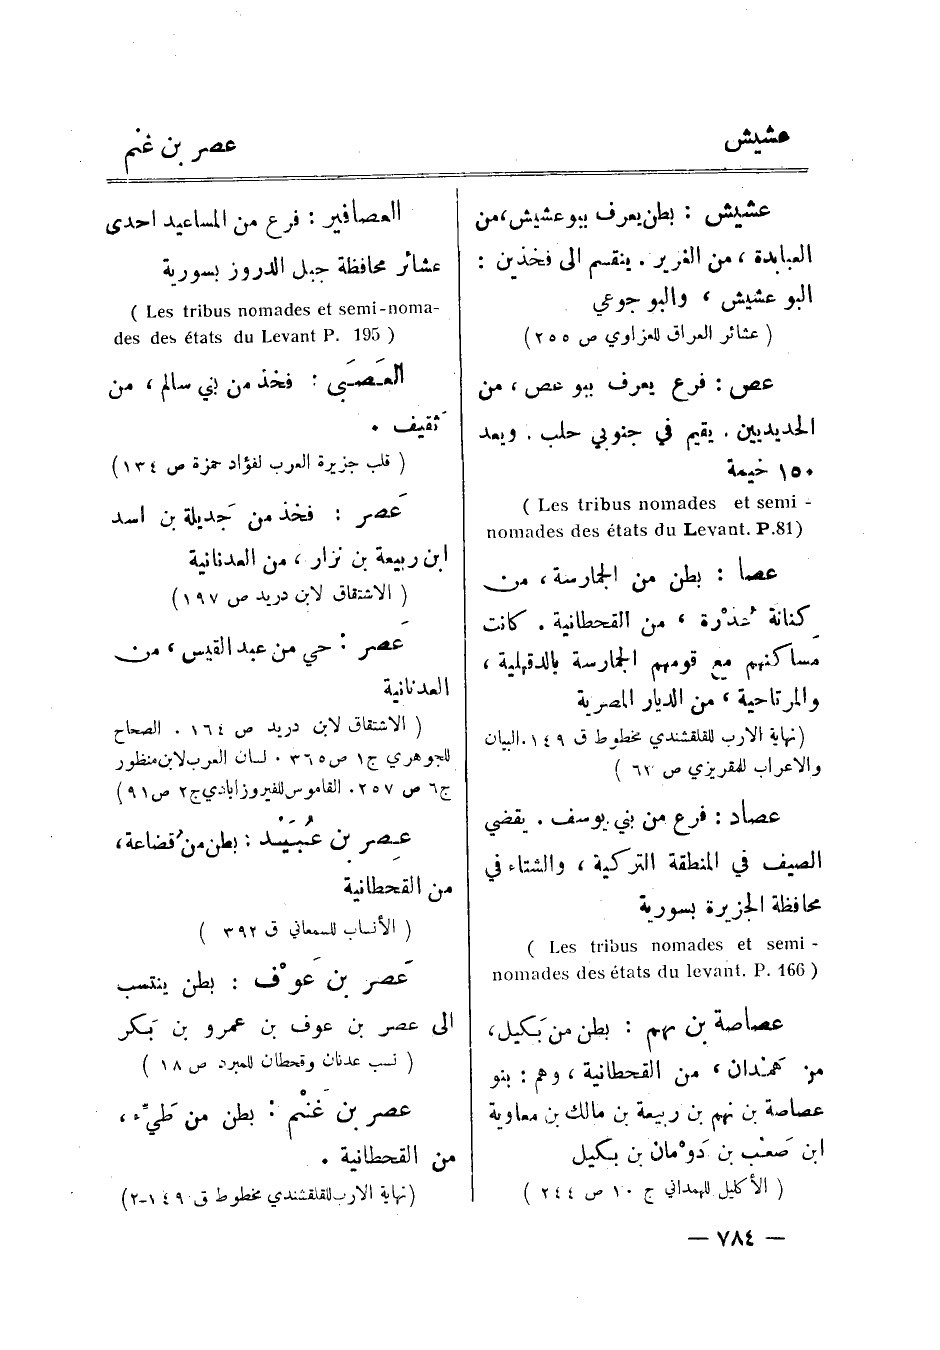 عشيش
عصر بن غَنْم
عشيش : بطن يعرف ببو عشيش، من
العبابدة ، من الغرير . ينقسم الى فخذين :
البو عشيش ، والبو جوعي
( عشائر العراق للعزاوي ص ٢٥٥ )
عص : فرع يعرف ببو عص ، من
الحديديين . يقيم في جنوبي حلب . ويعد
١٥٠ خيمة
( Les tribus nomades et semi -
nomades des états du Levant. P.81)
عصا : بطن من الجمارسة ، من
كِنانة عُذْرة ، من القحطانية . كانت
مساكنهم مع قومهم الجمارسة بالدقهلية ،
والمرتاحية ، من الديار المصرية
(نهاية الارب للقلقشندي مخطوط ق ١٤٩ . البيان
والاعراب للمقريزي ص ٦٢ )
عصاد : فرع من بني يوسف . يقضي
الصيف في المنطقة التركية ، والشتاء في
محافظة الجزيرة بسورية
( Les tribus nomades et semi -
nomades des états du levant. P. 166 )
عصاصة بن نهم : بطن من بَكيل،
من هَمْدان ، من القحطانية ، وهم : بنو
عصاصة بن نهم بن ربيعة بن مالك بن معاوية
ابن صَعْب بن دَوْمان بن بكيل
( الأكليل للهمداني ج ١٠ ص ٢٤٤ )
العصافير : فرع من المساعيد احدى
عشائر محافظة جبل الدروز بسورية
( Les tribus nomades et semi-noma-
des des états du Levant P. 195 )
العَصَبَى : فخذ من بني سالم ، من
ثَقيف .
( قلب جزيرة العرب لفؤاد حمزة ص ١٣٤ )
عَصر : فخذ من جَديلة بن اسد
ابن ربيعة بن نزار ، من العدنانية
( الاشتقاق لابن دريد ص ١٩٧)
عَصر : حي من عبد القيس ، من
العدنانية
( الاشتقاق لابن دريد ص ١٦٤ . الصحاح
للجوهري ج١ ص٣٦٥ . لسان العرب لابن منظور
ج٦ ص ٢٥٧. القاموس للفيروزابادي ج٢ ص٩١)
عِصر بن عُبَيْد : بطن من قُضاعة،
من القحطانية
( الأنساب للسمعاني ق ٣٩٢ )
عَصر بن عَوْف : بطن ينتسب
الى عصر بن عوف بن عمرو بن بَكر
( نسب عدنان وقحطان للمبرد ص ١٨ )
عصر بن غَنْم : بطن من طَيِّء ،
من القحطانية .
(نهاية الارب للقلقشندي مخطوط ق ١٤٩-٢)
— ٧٨٤ —